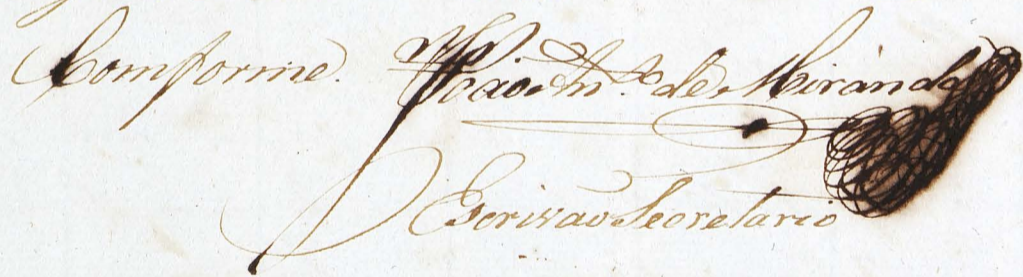 Comforme. João An.to de Miranda
Escrivao Secretario